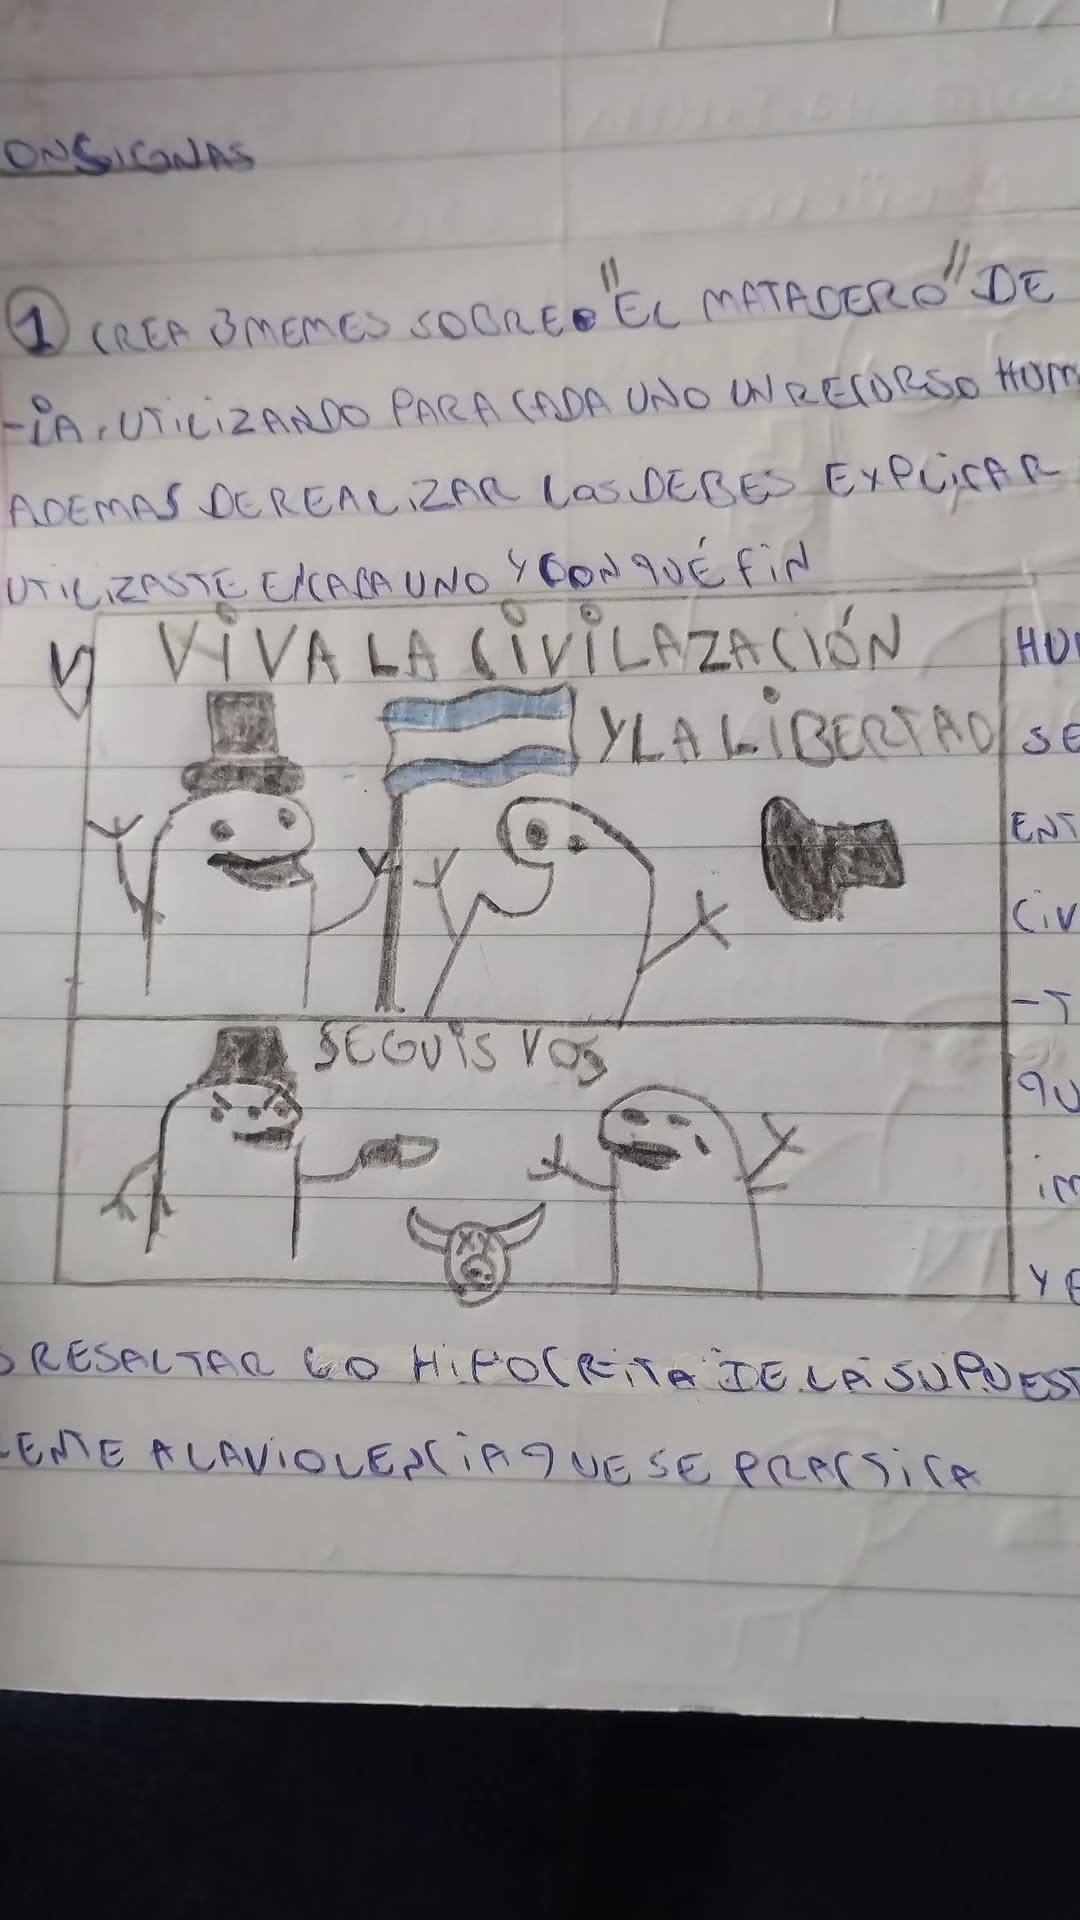 ONSIGNAS
1 CREA 3 MEMES SOBRE "EL MATADERO" DE
-ÍA, UTILIZANDO PARA CADA UNO UN RECURSO HUM
ADEMAS DE REALIZAR LOS DEBES EXPLICAR
UTILIZASTE EN CADA UNO Y CON QUÉ FIN
VIVA LA CIVILAZACIÓN
Y LA LIBERTAD
SEGUIS VOS
HU
SE
ENT
CIV
-T
QU
IM
Y E
RESALTAR LO HIPOCRITA DE LA SUPUEST
LENTE A LA VIOLENCIA QUE SE PRACTICA